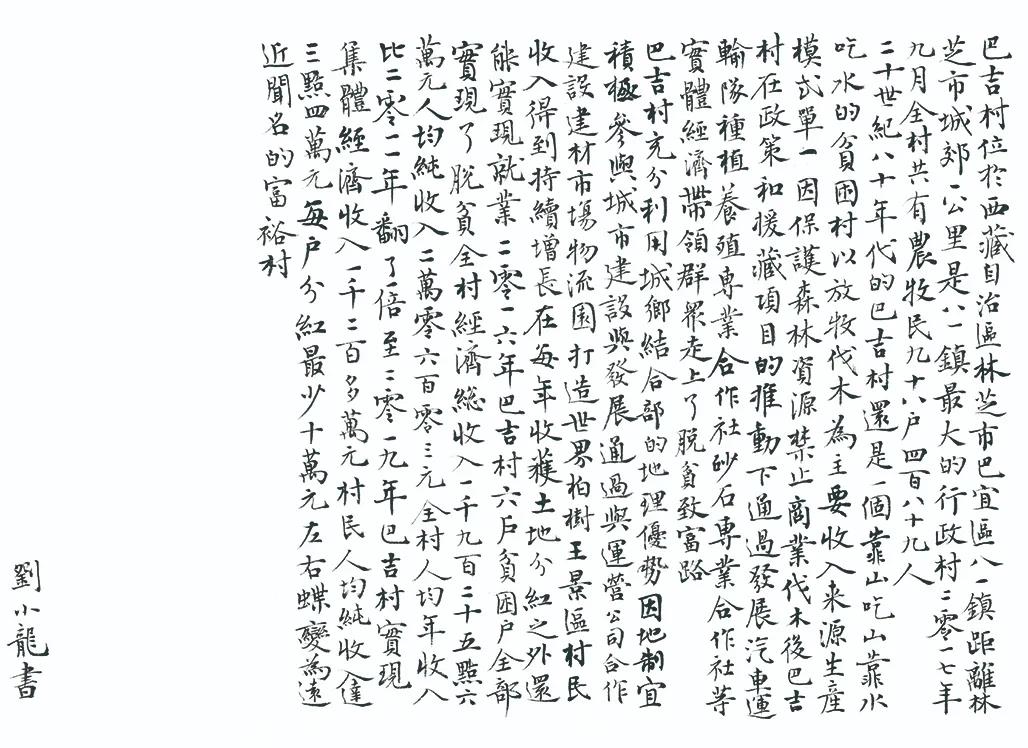 巴吉村位於西藏自治區林芝市巴宜區八一鎮距離林
芝市城郊一公里是八一鎮最大的行政村二零一七年
九月全村共有農牧民九十八户四百八十九人
二十世紀八十年代的巴吉村還是一個靠山吃山靠水
吃水的貧困村以放牧伐木為主要收入来源生産
模式單一因保護森林資源禁止商業伐木後巴吉
村在政策和援藏項目的推動下通過發展汽車運
輸隊種植養殖專業合作社砂石專業合作社等
實體經濟帶領群眾走上了脱貧致富路
巴吉村充分利用城鄉結合部的地理優勢因地制宜
積極參與城市建設與發展通過與運營公司合作
建設建材市場物流園打造世界柏樹王景區村民
收入得到持續增長在每年收獲土地分紅之外還
能實現就業二零一六年巴吉村六户貧困户全部
實現了脱貧全村經濟總收入一千九百二十五點六
萬元人均純收入二萬零六百零三元全村人均年收入
比二零一一年翻了一倍至二零一九年巴吉村實現
集體經濟收入一千二百多萬元村民人均純收入達
三點四萬元每户分紅最少十萬元左右蝶變為遠
近聞名的富裕村
劉小龍書